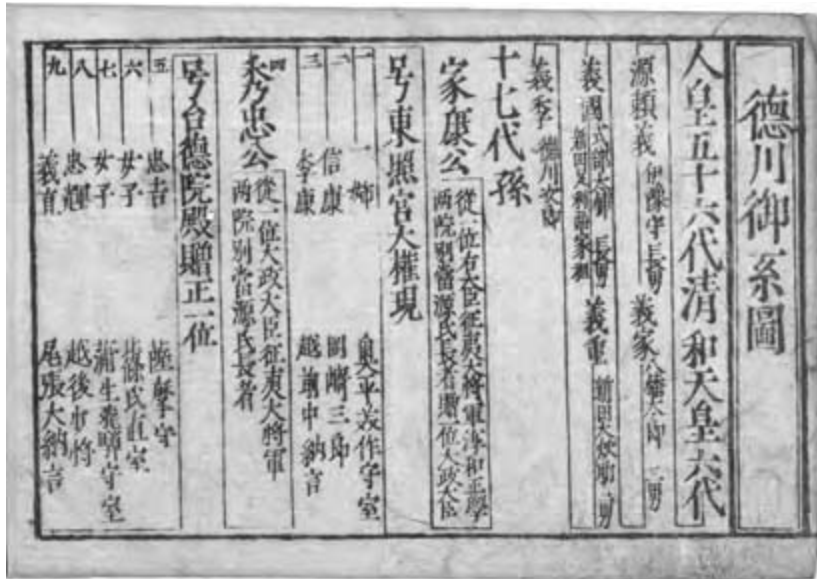 德川御系圖
人皇五十六代清和天皇六代
源頼義 伊豫守長男 義家 八幡太郎 二男
義國 式部大輔 長男 新田足利兩家祖 義重 新田大炊助 二男
義季 德川次郎
十七代孫
家康公 從一位右大臣征夷大将軍淳和奨學
兩院別當源氏長者贈一位大政大臣
号東照宮大權現
一 一姉 奥平美作守室
二 信康 岡崎三郎
三 秀康 越前中納言
四 秀忠公 從一位大政大臣征夷大将軍
兩院別當源氏長者
号台德院殿贈正一位
五 忠吉 薩摩守
六 女子 條氏直室
七 女子 蒲生飛騨守室
八 忠輝 越後少将
九 義直 尾張大納言